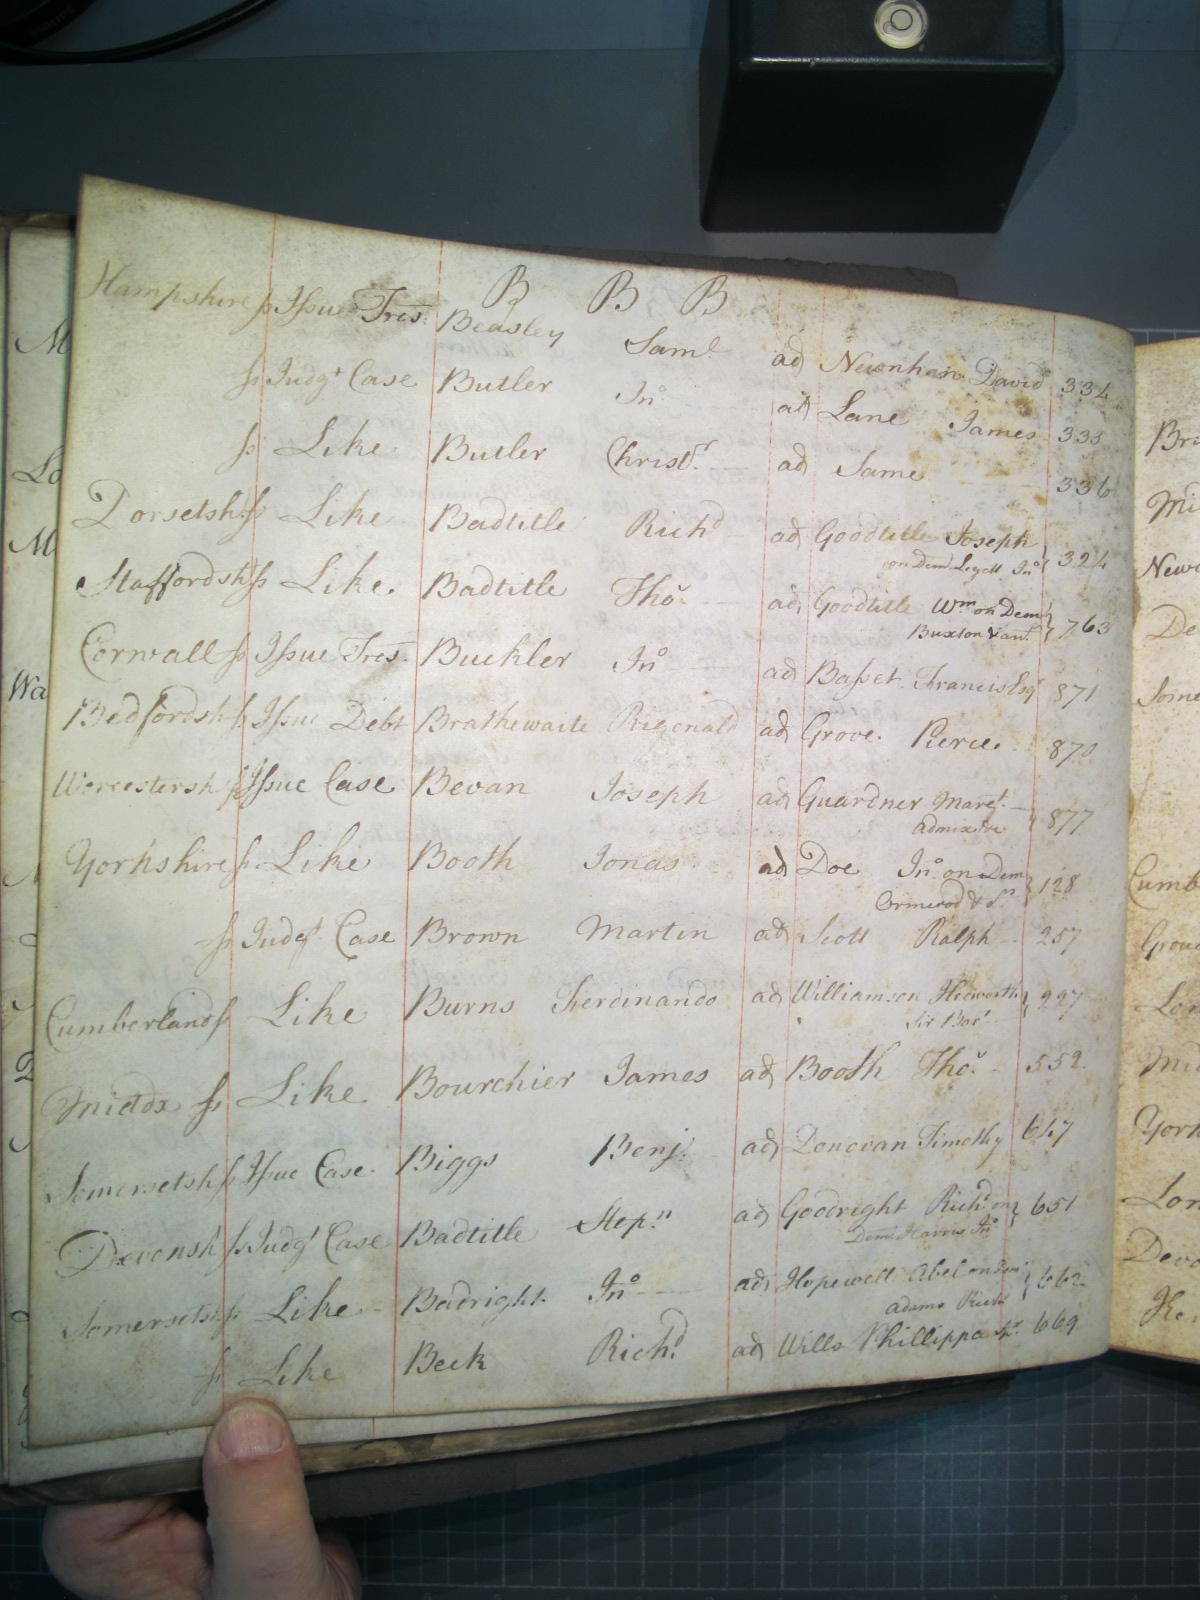 B B B
Hampshire ss Issue Tres. Beasley Saml. ad Newnham David 334
ss Judgt Case Butler Jno. ad Lane James 335
ss Like Butler Christr. ad Same 336
Dorsetsh. ss Like Badtitle Richd ad Goodtitle Joseph
on Dem Legell Jno. 324
Staffordsh ss Like. Badtitle Thos. ad Goodtitle Wm on Dem
Buxton & anr. 763
Cornwall ss Issue Tres. Buckler Jno ad Basset Francis Esqr 871
Bedfordsh ss Issue Debt Brathewaite Riggnald ad Grove. Pierce. 870
Worcestersh ss Issue Case Bevan Joseph ad Guardner Margt.
admixtre 877
Yorkshire ss Like Booth Jonas ad Doe Jno. on Dem
Ormerod & 128
ss Judgt Case Brown Martin ad Scott Ralph 257
Cumberland ss Like Burns Ferdinando ad Williamson Hedworth
Sir Bart. 997
Middx ss Like Bourchier James ad Booth Thos. 552
Somersetsh ss Issue Case. Biggs Benj. ad Donovan Timothy 647
Devonsh ss Judgt Case Badtitle Stepn ad Goodright Richd. on
Dem. Harris Jno 651
Somersetsh ss Like Badright Jno ad Hopewell Abel on Dem
Adams Richd 662
ss Like Beck Richd. ad Wills Phillippa Spr. 669
Wa